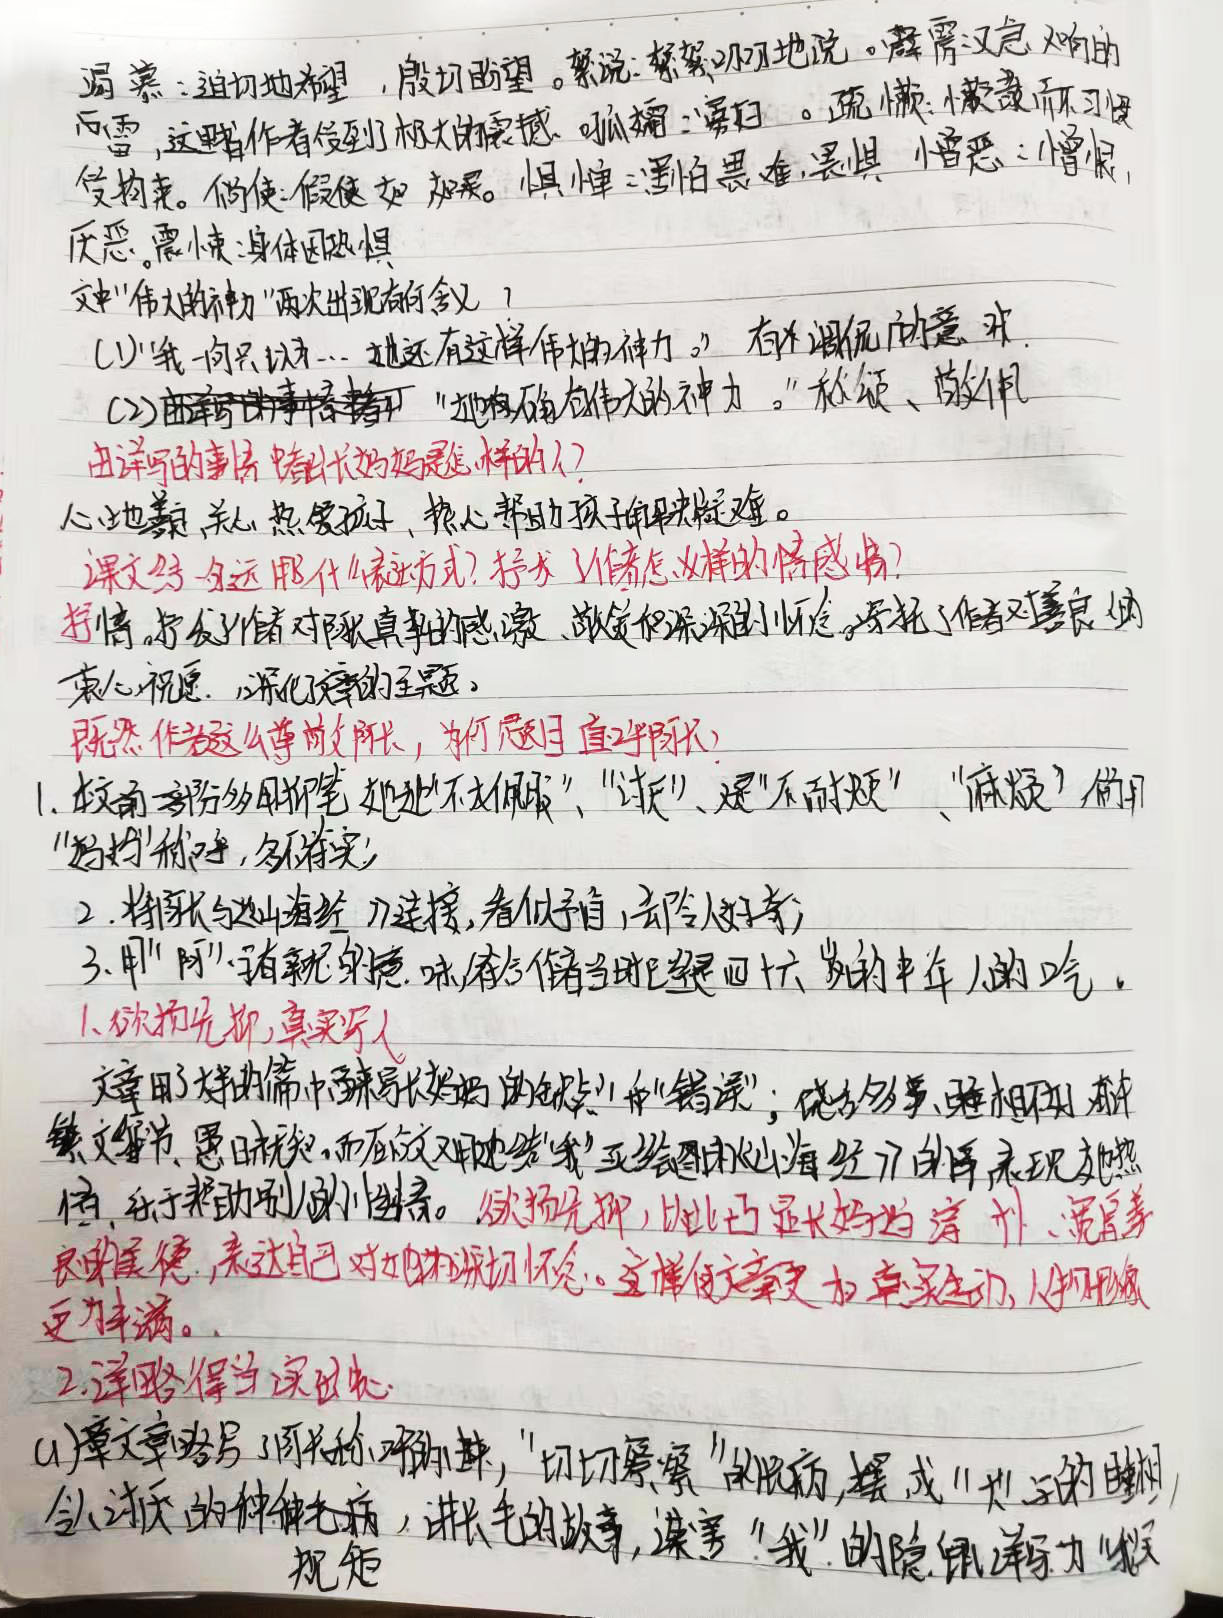 渴慕：迫切地希望，殷切盼望。絮说：絮絮叨叨地说。霹雳：又急又响的
雷，这里指作者受到了极大的震撼。孤孀：寡妇。疏懒：懒散而不习惯
受拘束。倘使：假使 如 如果。惧惮：害怕畏难，畏惧 憎恶：憎恨，
厌恶。震悚：身体因恐惧
文中"伟大的神力"两次出现有何含义？
(1)"我一向只以为…她还有这样伟大的神力。" 有 调侃的意味.
(2) "她确有伟大的神力。"称颂、敬佩
由详写的事情中看出长妈妈是怎样的人？
心地善良，关心 热爱孩子，热心帮助孩子解决疑难。
课文结尾运用什么表达方式？抒发了作者怎么样的情感？
抒情。抒发了作者对阿长真挚的感激、敬爱和深深的怀念。寄托了作者对善良人的
衷心祝愿.，深化了文章的主题。
既然作者这么尊敬阿长，为何题目直呼阿长？
1.本文前部分多用抑笔 她"不大佩服"、"讨厌"、是"不耐烦"、"麻烦"，倘用
"妈妈"称呼，名不符实；
2.将阿长与《山海经》连接，看似矛盾，却令人好奇；
3.用"阿"字有亲昵的意味，符合作者当时已经是四十六岁的中年人的口吻。
1、欲扬先抑，真实写人
文章用了大半的篇幅来写长妈妈的"缺点"和"错误"；饶舌多事、睡相不好
繁文缛节、愚昧无知。而在后文又用她给"我"买绘图的《山海经》的事，表现她热
情、乐于帮助别人的性格。欲扬先抑，以此凸显长妈妈淳朴、宽厚善
良的美德，表达自己对她的深切怀念。这样使文章更为真实生动、人物形象
更为丰满。
2.详略得当
(1)文章略写了阿长称呼的由来，"切切察察"的脱病，摆成"大"字的睡相，
令人讨厌的种种毛病，讲长毛的故事，谋害"我"的隐鼠，详写为"我
规矩